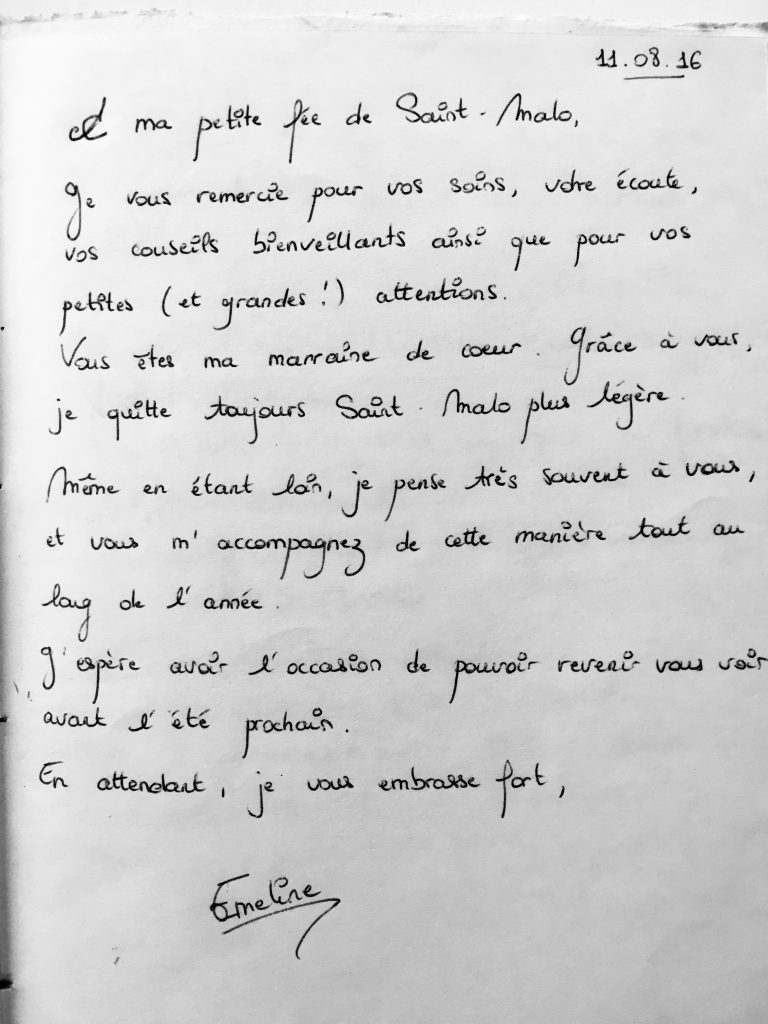 11.08.16
A ma petite fée de Saint-Malo,
Je vous remercie pour vos soins, votre écoute,
vos conseils bienveillants ainsi que pour vos
petites (et grandes !) attentions.
Vous êtes ma marraine de coeur. Grâce à vous,
je quitte toujours Saint-Malo plus légère.
Même en étant loin, je pense très souvent à vous,
et vous m'accompagnez de cette manière tout au
long de l'année.
J'espère avoir l'occasion de pouvoir revenir vous voir
avant l'été prochain.
En attendant, je vous embrasse fort,
Emeline